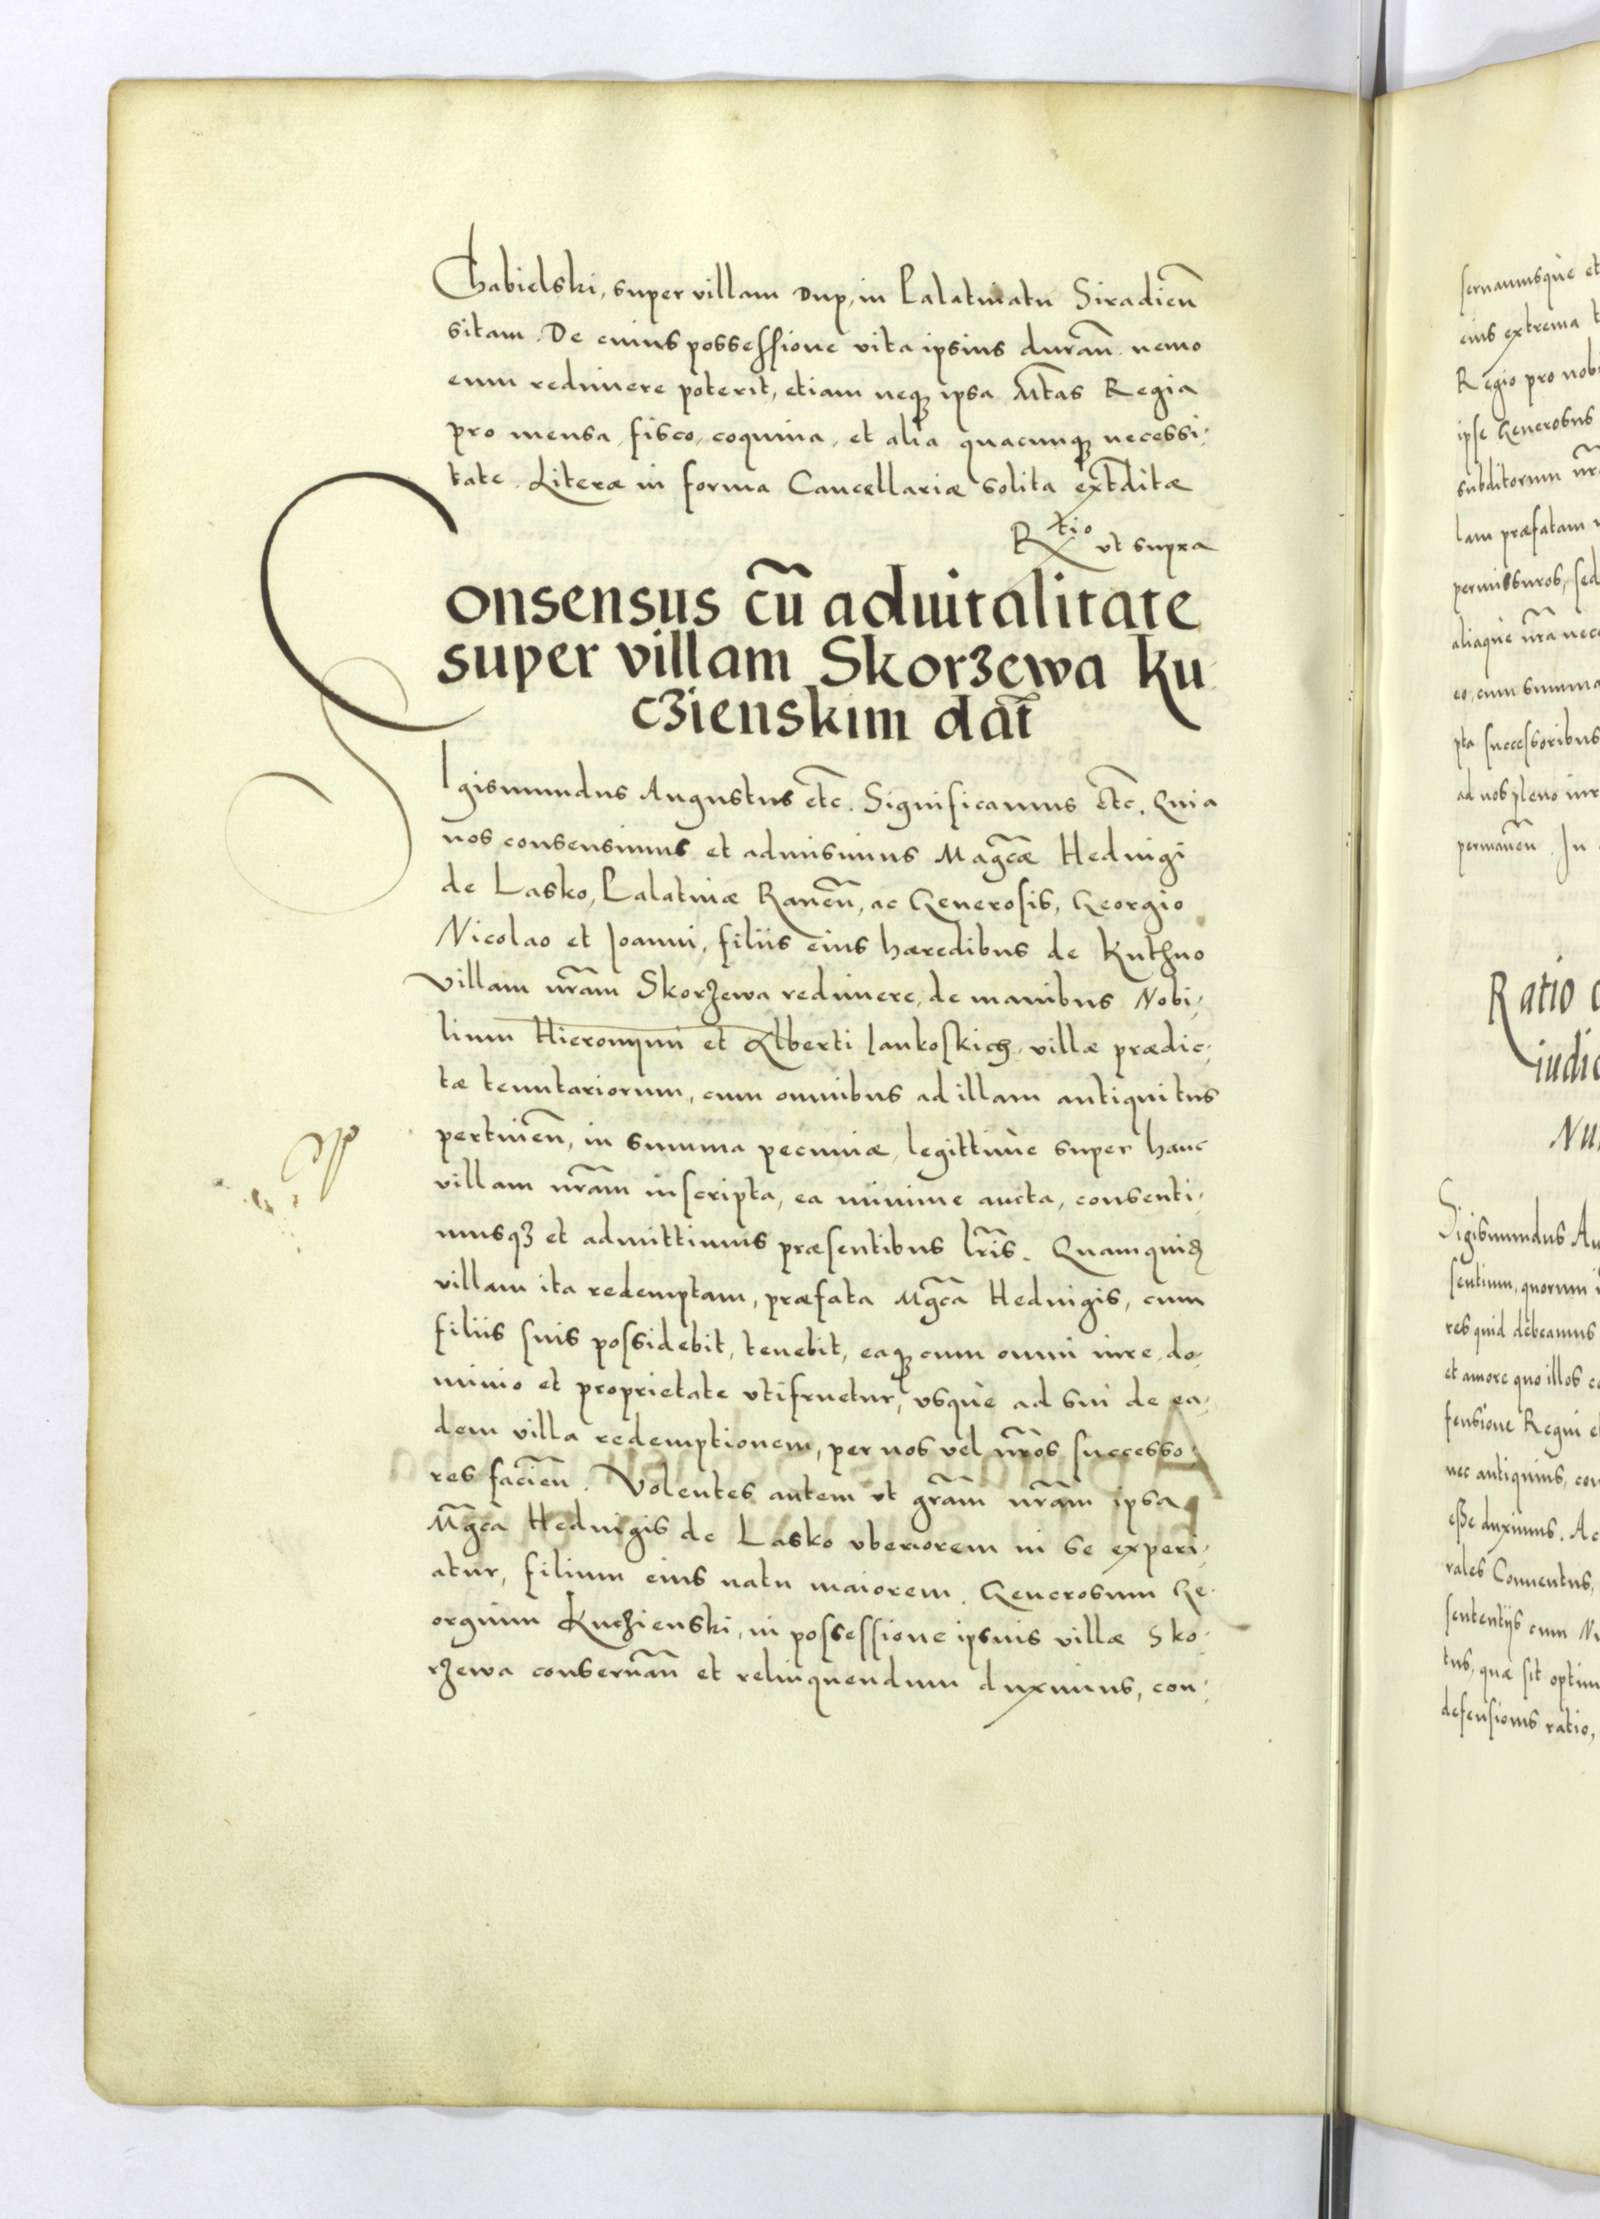 Chabielski, super villam Dup, in Palatinatu Siradien̄
sitam. De cuius possessione vita ipsius duran̄. nemo
eum redimere poterit, etiam neq₃ ipsa M̄tas Regia
pro mensa, fisco, coquina, et alia quacunq₃ necessi,
tate. Literæ in forma Cancellariæ solita ext̄ditæ
R^tio vt supra
Consensus cū aduitalitate
super villam Skorʒewa Ku
cʒienskim dat̄
Sigismundus Augustus etc̄. Significamus etc̄. Quia
nos consensimus et admisimus Magc̄æ Heduigi
de Lasko, Palatinæ Rauen̄, ac Generosis, Georgio
Nicolao et Joanni, filiis eius hæredibus de Kuthno
villam nr̄am Skorʒewa redimere, de manibus Nobi,
lium Hieronymi et Alberti Jankoskich, villæ prædic,
tæ tenutariorum, cum omnibus ad illam antiquitus
pertinen̄, in summa pecuniæ, legittimè super hanc
villam nr̄am inscripta, ea minime aucta, consenti,
musqʒ et admittimus præsentibus lr̄is. Quamquid̄
villam ita redemptam, præfata Mgc̄a Heduigis, cum
filiis suis possidebit, tenebit, eaq₃ cum omni iure, do,
minio et proprietate vtifruetur, vsquè ad sui de ea,
dem villa redemptionem, per nos vel nr̄os successo,
res facien̄. Volentes autem vt gr̄am nr̄am ipsa
Mgc̄a Heduigis de Lasko vberiorem in se experi,
atur, filium eius natu maiorem, Generosum Ge,
orgium Kucʒienski, in possessione ipsius villæ Sko,
rʒewa conseruan̄ et relinquendum duximus, con,
seruamusquè et
eius extrema
Regio pro nob
ipse Generosus
subditorum nr̄
lam præfatam
permissuros, sed
aliaquè nr̄a nec
eo, cum summa
pta successoribus
ad nos pleno iur
permanen̄. In
Ratio
iudic
Sigismundus Au
sentium, quorum
res quid debeamus
et amore quo illos
fensione Regni
nec antiquius, con
eße duximus. Ac
rales Conuentus,
sententijs cum
tus, quæ sit optim
defensionis ratio,